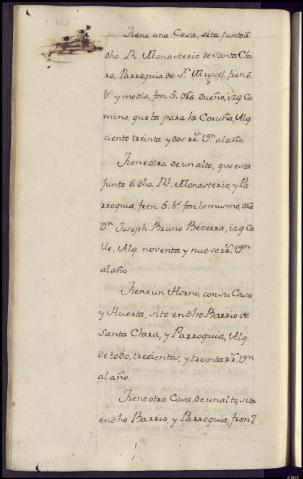 Tiene una Casa, sita junto á
dho. Rl. Monasterio de Santa Cla
ra, Parroquia de Sn. Miguel, fren. 6.
bs. y media, fon. 5. dha. dueño, izq. Ca
mino, que ba para la Coruña, Alq.
ciento treinta y dos rrs. vn. al año.
Tiene otra de un alto, que esta
junto á dho. Rl. Monasterio y Pa
rroquia, fren. 6. bs. fon. lo mismo, dha.
Dn. Joseph Bruno Becerra, izq. Ca
lle, Alq. noventa y nueve rrs. vn.
al año
Tiene un Horno, con su Casa
y Huerta, sito en dho Barrio de
Santa Clara, y Parroquia, Alq.
de todo, trecientos, y treinta rrs. vn.
al año.
Tiene otra Casa, de un alto, sita
en dho Barrio, y Parroquia, fren. 7